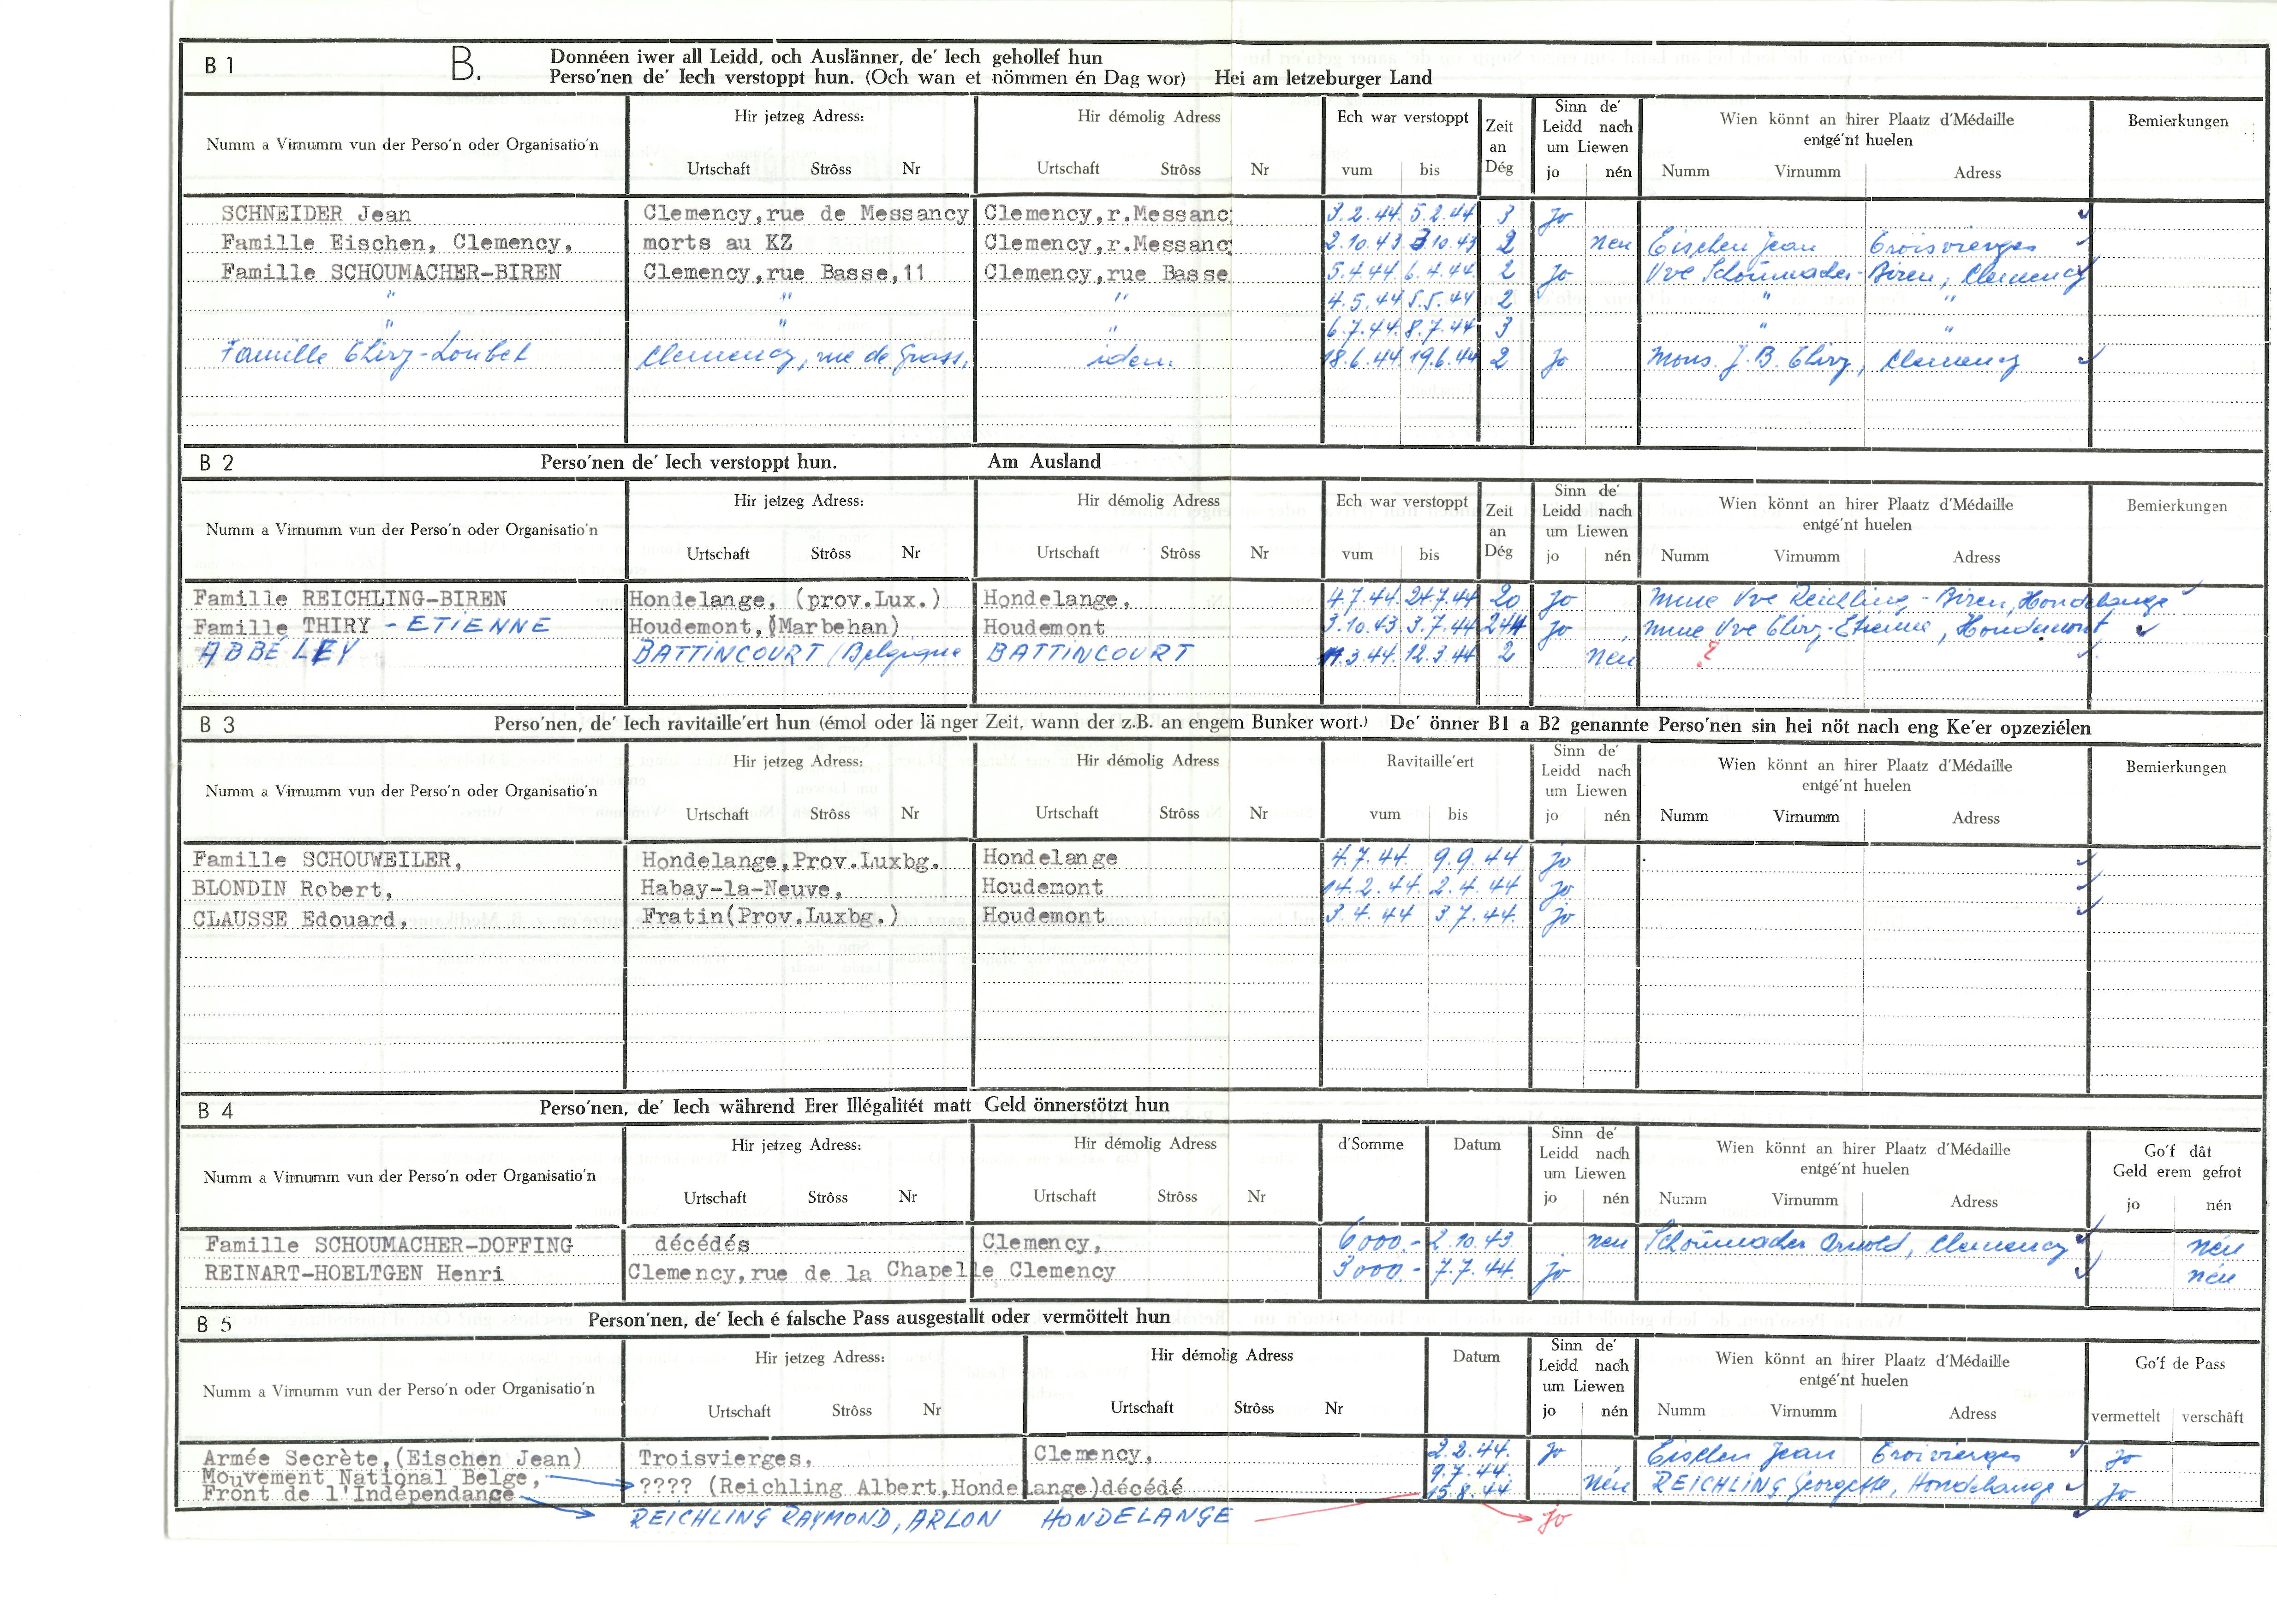 B 1 B. Donnéen iwer all Leidd, och Auslänner, de' Iech gehollef hun
Perso'nen de' Iech verstoppt hun. (Och wan et nömmen én Dag wor) Hei am letzeburger Land
Numm a Virnumm vun der Perso'n oder Organisatio'n Hir jetzeg Adress: Urtschaft Strôss Nr Hir démolig Adress Urtschaft Strôss Nr Ech war verstoppt vum bis Zeit an Dég Sinn de' Leidd nach um Liewen jo nén Wien könnt an hirer Plaatz d'Médaille entgé'nt huelen Numm Virnumm Adress Bemierkungen
SCHNEIDER Jean Clemency,rue de Messancy Clemency,r.Messanc 3.2.44. 5.2.44 3 jo
Famille Eischen, Clemency, morts au KZ Clemency,r.Messanc 2.10.43 3.10.43 2 nen Eischen Jean Troisvierges
Famille SCHOUMACHER-BIREN Clemency,rue Basse,11 Clemency,rue Basse 5.4.44 6.4.44. 2 jo Vve Schoumacher-Biren, Clemency
" " " 4.5.44 5.5.44 2 " "
" " " 6.7.44. 8.7.44 3 " "
Famille Thiry-Loubet Clemency, rue de Grass, idem 18.6.44. 19.6.44 2 jo Mons. J.B. Thiry, Clemency
B 2 Perso'nen de' Iech verstoppt hun. Am Ausland
Numm a Virnumm vun der Perso'n oder Organisatio'n Hir jetzeg Adress: Urtschaft Strôss Nr Hir démolig Adress Urtschaft Strôss Nr Ech war verstoppt vum bis Zeit an Dég Sinn de' Leidd nach um Liewen jo nén Wien könnt an hirer Plaatz d'Médaille entgé'nt huelen Numm Virnumm Adress Bemierkungen
Famille REICHLING-BIREN Hondelange, (prov.Lux.) Hondelange, 4.7.44. 24.7.44 20 jo Mme Vve Reichling-Biren, Hondelange
Famille THIRY - ETIENNE Houdemont,(Marbehan) Houdemont 3.10.43 3.7.44 244 jo Mme Vve Thiry-Etienne, Houdemont
ABBÉ LEY BATTINCOURT (Belgique BATTINCOURT 11.3.44. 12.3.44 2 nen ?
B 3 Perso'nen, de' Iech ravitaille'ert hun (émol oder lä nger Zeit, wann der z.B. an engem Bunker wort.) De' önner B1 a B2 genannte Perso'nen sin hei nöt nach eng Ke'er opzeziélen
Numm a Virnumm vun der Perso'n oder Organisatio'n Hir jetzeg Adress: Urtschaft Strôss Nr Hir démolig Adress Urtschaft Strôss Nr Ravitaille'ert vum bis Sinn de' Leidd nach um Liewen jo nén Wien könnt an hirer Plaatz d'Médaille entgé'nt huelen Numm Virnumm Adress Bemierkungen
Famille SCHOUWEILER, Hondelange,Prov.Luxbg. Hondelange 4.7.44. 9.9.44 jo
BLONDIN Robert, Habay-la-Neuve, Houdemont 14.2.44. 2.4.44 jo
CLAUSSE Edouard, Fratin(Prov.Luxbg.) Houdemont 3.4.44 3.7.44. jo
B 4 Perso'nen, de' Iech während Erer Illégalitét matt Geld önnerstötzt hun
Numm a Virnumm vun der Perso'n oder Organisatio'n Hir jetzeg Adress: Urtschaft Strôss Nr Hir démolig Adress Urtschaft Strôss Nr d'Somme Datum Sinn de' Leidd nach um Liewen jo nén Wien könnt an hirer Plaatz d'Médaille entgé'nt huelen Numm Virnumm Adress Go'f dât Geld erem gefrot jo nén
Famille SCHOUMACHER-DOFFING décédés Clemency, 6000.- 2.10.43 nen Schoumacher Arnold, Clemency nén
REINART-HOELTGEN Henri Clemency,rue de la Chapelle Clemency 3000.- 7.7.44. jo nén
B 5 Person'nen, de' Iech é falsche Pass ausgestallt oder vermöttelt hun
Numm a Virnumm vun der Perso'n oder Organisatio'n Hir jetzeg Adress: Urtschaft Strôss Nr Hir démolig Adress Urtschaft Strôss Nr Datum Sinn de' Leidd nach um Liewen jo nén Wien könnt an hirer Plaatz d'Médaille entgé'nt huelen Numm Virnumm Adress Go'f de Pass vermettelt verschâft
Armée Secrète,(Eischen Jean) Troisvierges, Clemency, 2.2.44. jo Eischen Jean Troivierges jo
Mouvement National Belge, ???? (Reichling Albert,Hondelange)décédé 9.7.44. nén REICHLING Georgette, Hondelange jo
Front de l'Indépendance 15.8.44
REICHLING RAYMOND, ARLON HONDELANGE jo